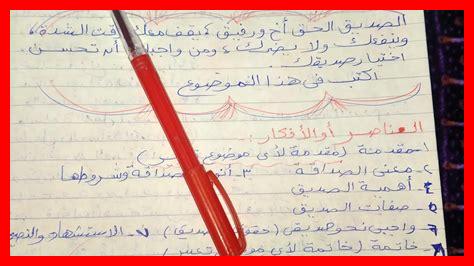 الصديق الحق أخ ورفيق، يقف معك وقت الشدة،
وينفعك ولا يضرك، ومن واجبك أن تحسن
اختيار صديقك.
اكتب في هذا الموضوع
العناصر أو الأفكار:
١- مقدمة (مقدمة لأي موضوع
٢- معنى الصداقة ٣- الصداقة وشروطها
٤- أهمية الصديق
٥- صفات الصديق
٦- واجبي نحو صديقي ٧- الاستشهاد
٨- خاتمة (خاتمة لأي